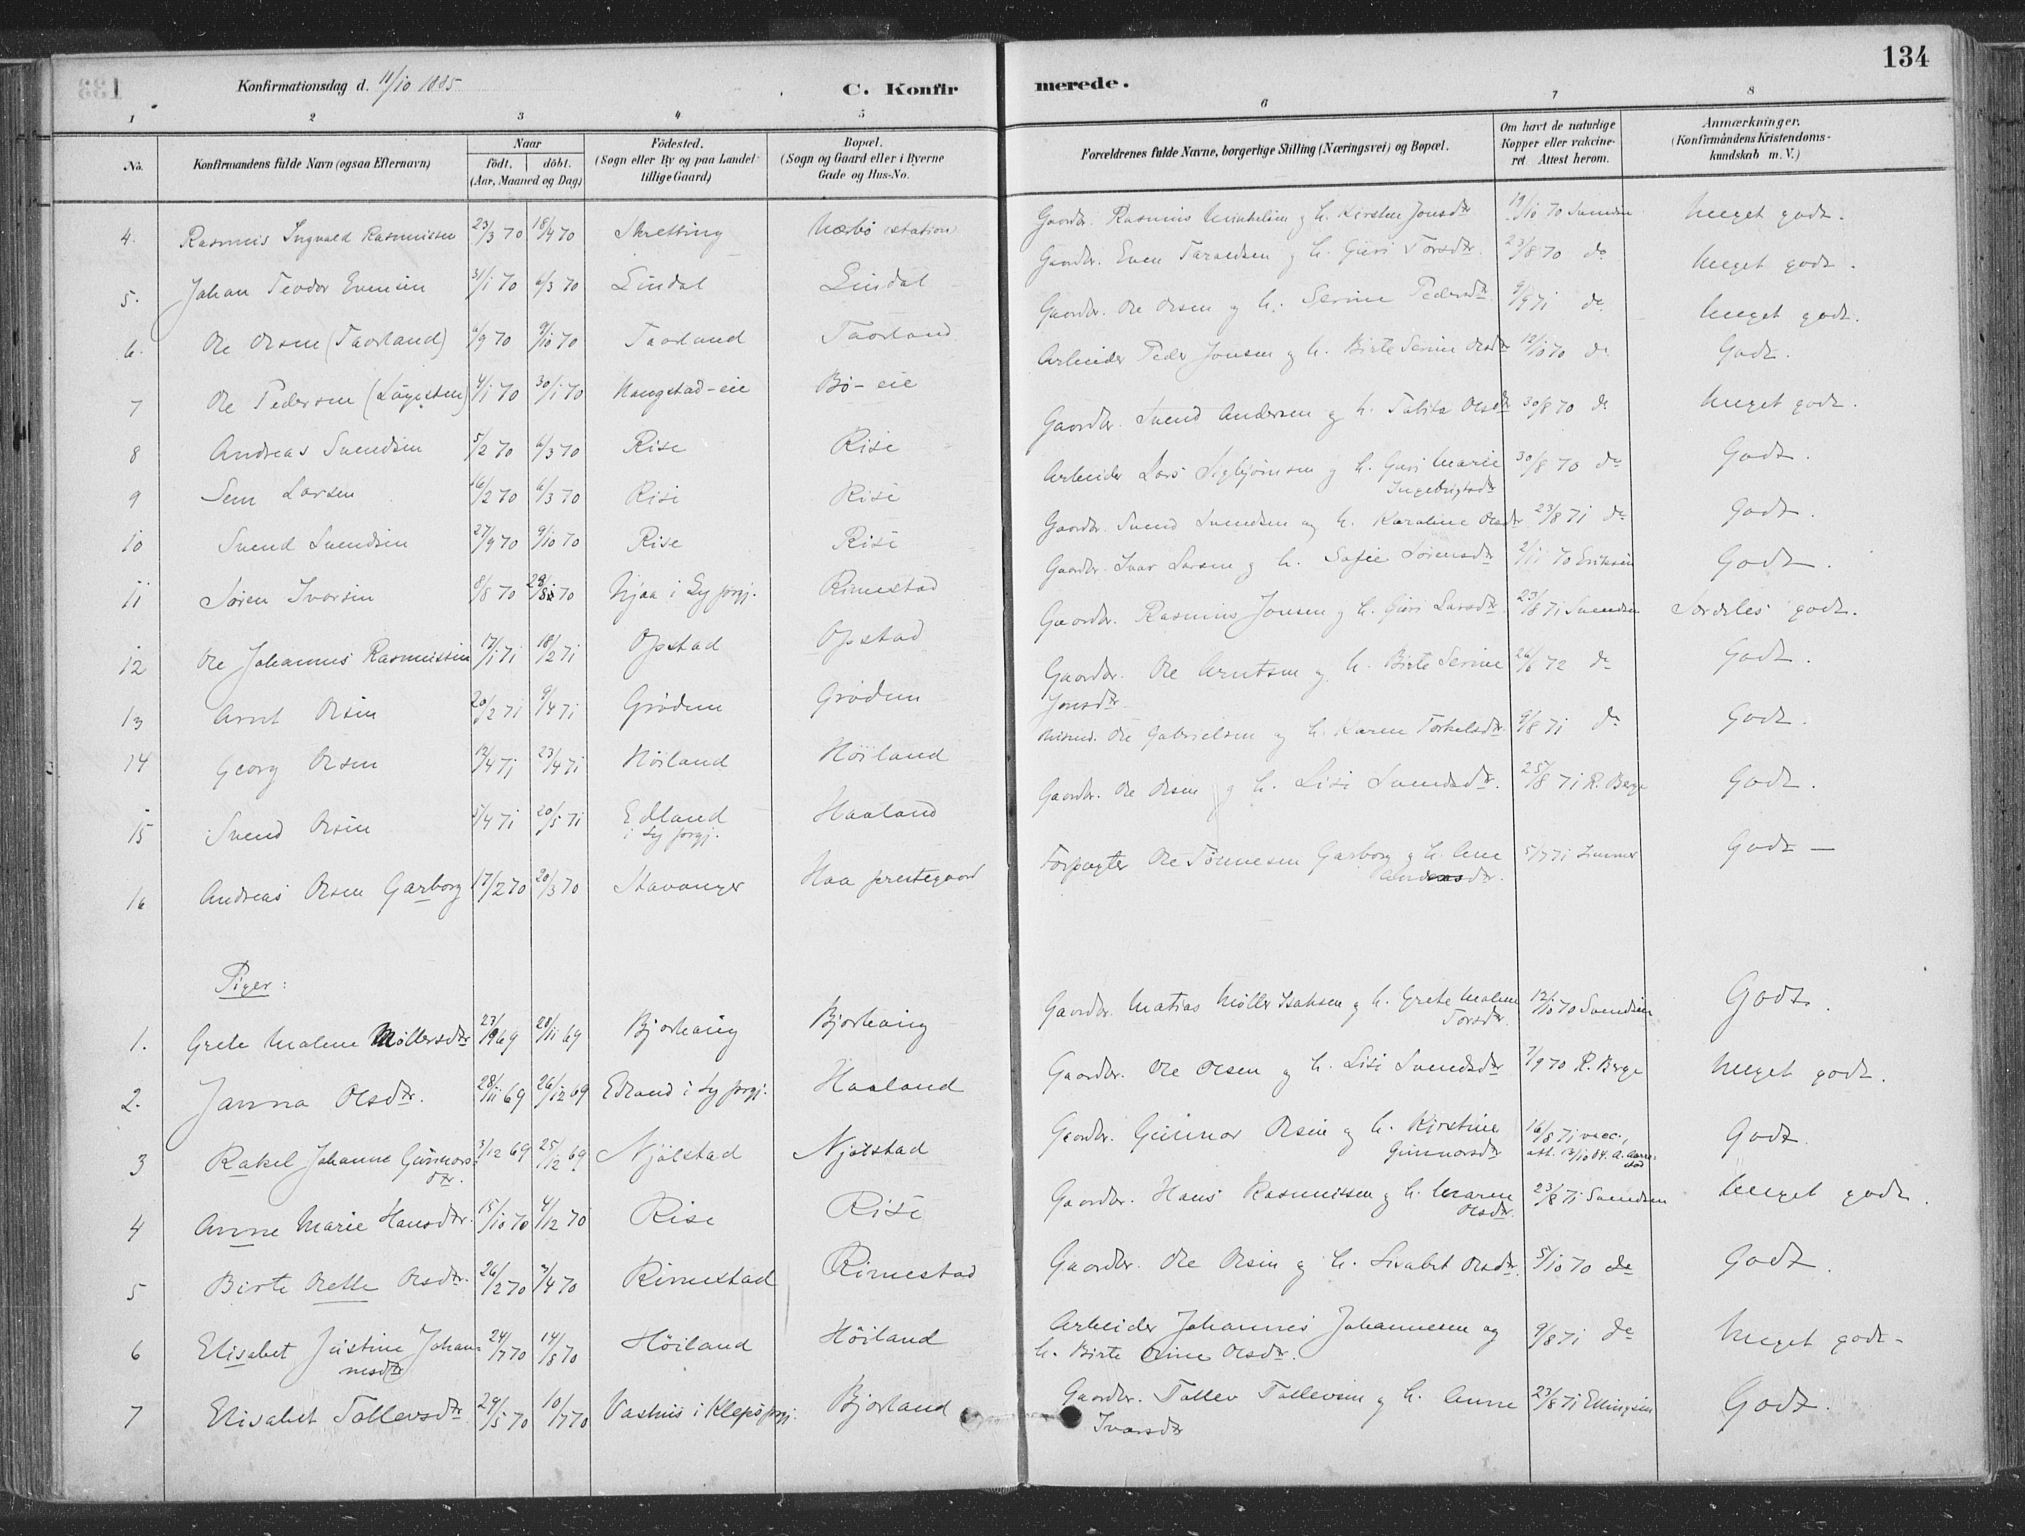 134
Konfirmationsdag d. 11/10 1885
C. Konfir
merede.
1 2 3 4 5 6 7 8
No.
Konfirmandens fulde Navn (ogsaa Efternavn)
Naar
födt. döbt.
(Aar, Maaned og Dag)
Födested.
(Sogn eller By og paa Landet
tillige Gaard)
Bopæl.
(Sogn og Gaard eller i Byerne
Gade og Hus-No.
Forældrenes fulde Navne, borgerlige Stilling (Næringsvei) og Bopæl.
Om havt de naturlige
Kopper eller vakcine-
ret. Attest herom.
Anmærkninger.
(Konfirmandens Kristendoms-
kundskab m. V.)
4. Rasmus Ingvald Rasmussen 23/3 70 18/4 70 Skretting Nærbö station Gaardbr. Rasmus h. Kirsten Jonsdtr 19/10 70 Svendsen Meget godt.
5. Johan Teodor Evensen 31/1 70 6/3 70 Lindal Lindal Gaardbr. Even Taraldsen og h. Guri Torsdtr. 23/8 70 do Meget godt.
6. Ole Olsen (Taorland) 6/9 70 9/10 70 Taorland Taorland Gaardbr. Ole Olsen og h. Serine Pedersdtr 9/9 71 do Meget godt.
7 Ole Pedersen 4/1 70 30/1 70 Haugstad-eie Bö-eie Arbeider Peder Jonsen og h. Birte Serine Olsdtr 12/10 70 do Godt.
8 Andreas Svendsen 5/2 70 6/3 70 Rise Rise Gaardbr. Svend Andersen og h. Talita Olsdtr 30/8 70 do Meget godt.
9 Sem Larsen 16/2 70 6/3 70 Rise Rise Arbeider Lars Sigbjörnsen og h. Guri Marie
Ingebrigtsdtr 30/8 70 do Godt.
10 Svend Svendsen 27/9 70 9/10 70 Rise Rise Gaardbr. Svend Svendsen og h. Karoline Olsdtr 23/8 71 do Godt.
11 Sören Ivarsen 8/8 70 28/8 70 Njaa i Ly prgj. Rimestad Gaardbr. Ivar Larsen og h. Sofie Sörensdtr 2/11 70 Eriksen Godt.
12 Ole Johannes Rasmussen 17/1 71 18/2 71 Opstad Opstad Gaardbr. Rasmus Jonsen og h. Guri Larsdtr 23/8 71 Svendsen Særdeles godt.
13 Arnt Olsen 20/2 71 9/4 71 Grödem Grödem Gaardbr. Ole Arntsen og h. Birte Serine
Jonsdtr 26/6 72 do Godt.
14 Georg Olsen 12/4 71 23/4 71 Höiland Höiland Ole Gabrielsen og h. Karen Torkelsdtr 9/8 71 do Godt.
15 Svend Olsen 5/4 71 20/5 71 Edland
i Ly prgj. Haaland Gaardbr. Ole Olsen og h. Lisi Svendsdtr. 25/8 71 R. Berge Godt.
16 Andreas Olsen Garborg 17/2 70 20/3 70 Stavanger Haa prestegaard Forpagter Ole Tönnesen Garborg og h. Ane 5/7 71 Godt —
Piger:
1. Grete Malene Möllersdtr 28/11 69 Bjorhaug Bjorhaug Gaardbr. Matias Möller Isaksen og h. Grete Malene
Torsdtr. 12/10 70 Svendsen Godt.
2. Janna Olsdtr. 28/11 69 26/12 69 Edland i Ly prgj. Haaland Gaardbr. Ole Olsen og h. Lisi Svendsdtr 7/9 70 R. Berge Meget godt.
3 Rakel Johanne Gunnars-
dtr. 3/12 69 25/12 69 Njölstad Njölstad Gaardbr. Gunnar Olsen og h. Kirstine
Gunnarsdtr 16/8 71 vacc.,
att. 13/10 84. A. Aarre-
stad Godt.
4 Anne Marie Hansdtr. 15/10 70 4/12 70 Rise Rise Gaardbr. Hans Rasmussen og h. Maren
Olsdtr. 23/8 71 Svendsen Meget godt.
5 Birte Olette Olsdtr. 26/2 70 3/4 70 Rimestad Rimestad Gaardbr. Ole Olsen og h. Lisabet Olsdtr. 5/10 70 do Godt.
6 Elisabet Justine Johan-
nesdtr 24/7 70 14/8 70 Höiland Höiland Arbeider Johannes Johannesen og
h. Birte Oline Olsdtr. 9/8 71 do Meget godt.
7 Elisabet Tollevsdtr 29/5 70 10/7 70 Vashus i Klep prgj. Bjorland Gaardbr. Tollev Tollevsen og h. Anne
Ivarsdtr 23/8 71 Ellingsen Godt.